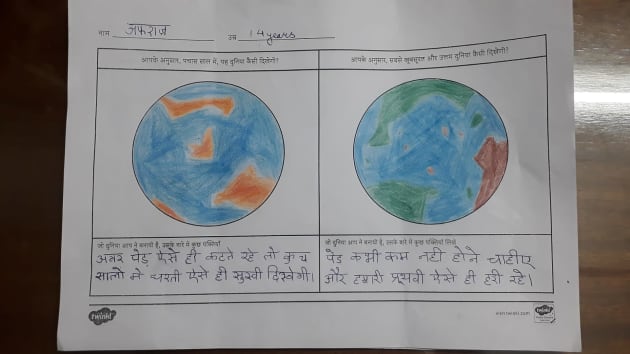 नाम जफराज उम्र 14 years
आपके अनुसार, पचास साल में, यह दुनिया कैसी दिखेगी?
आपके अनुसार, सबसे खूबसूरत और उत्तम दुनिया कैसी दिखेगी?
जो दुनिया आप ने बनायी है, उसके बारे में कुछ पंक्तियाँ
अगर पेड़ ऐसे ही कटते रहे तो कुछ
सालो मे धरती ऐसे ही सुखी दिखेगी।
जो दुनिया आप ने बनायी है, उसके बारे में कुछ पंक्तियाँ लिखें
पेड़ कभी कम नही होने चाहीए
और हमारी पृथ्वी ऐसे ही हरी रहे।
twinkl
visit twinkl.com